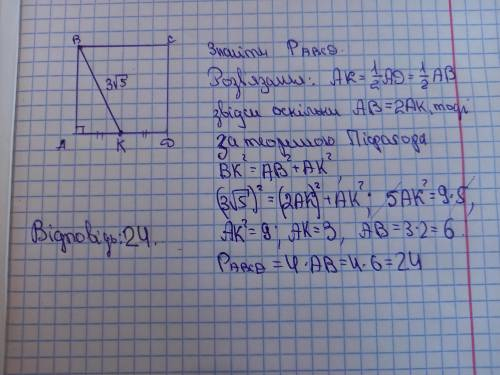 B C
3√5
A K D
Знайти P_ABCD.
Розв'язання: AK = 1/2 AD = 1/2 AB
звідси оскільки AB = 2AK, тоді
за теоремою Піфагора
BK² = AB² + AK²,
(3√5)² = (2AK)² + AK²; 5AK² = 9·5,
AK² = 9, AK = 3, AB = 3·2 = 6.
P_ABCD = 4·AB = 4·6 = 24
Відповідь: 24.